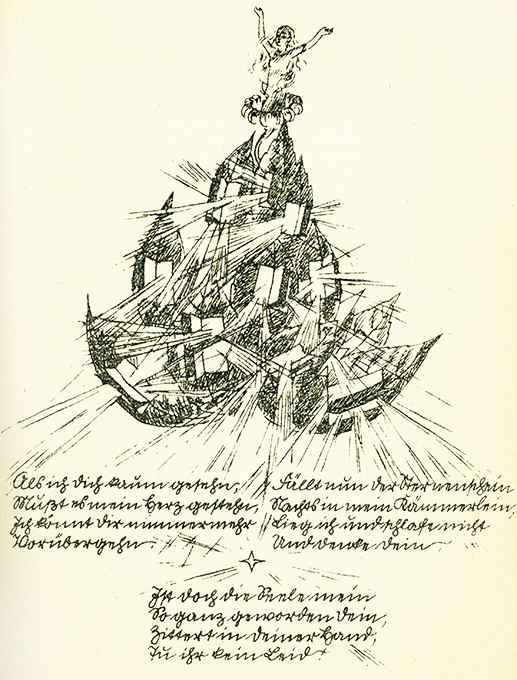 Als ich dich kaum gesehn,
Mußt es mein Herz gestehn,
Ich könnt dir nimmermehr
Vorübergehn.
Fällt nun der Sternenschein
Nachts in mein Kämmerlein,
Lieg ich und schlafe nicht
Und denke dein.
Ist doch die Seele mein
So ganz geworden dein,
Zittert in deiner Hand,
Tu ihr kein Leid!